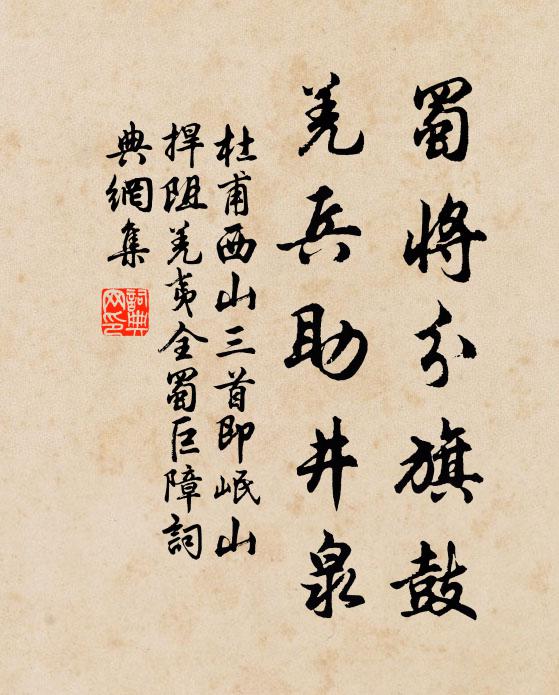 蜀將分旗鼓
羌兵助井泉
杜甫西山三首即岷山
捍阻羌夷全蜀巨障詞
典網集
詞典
网印